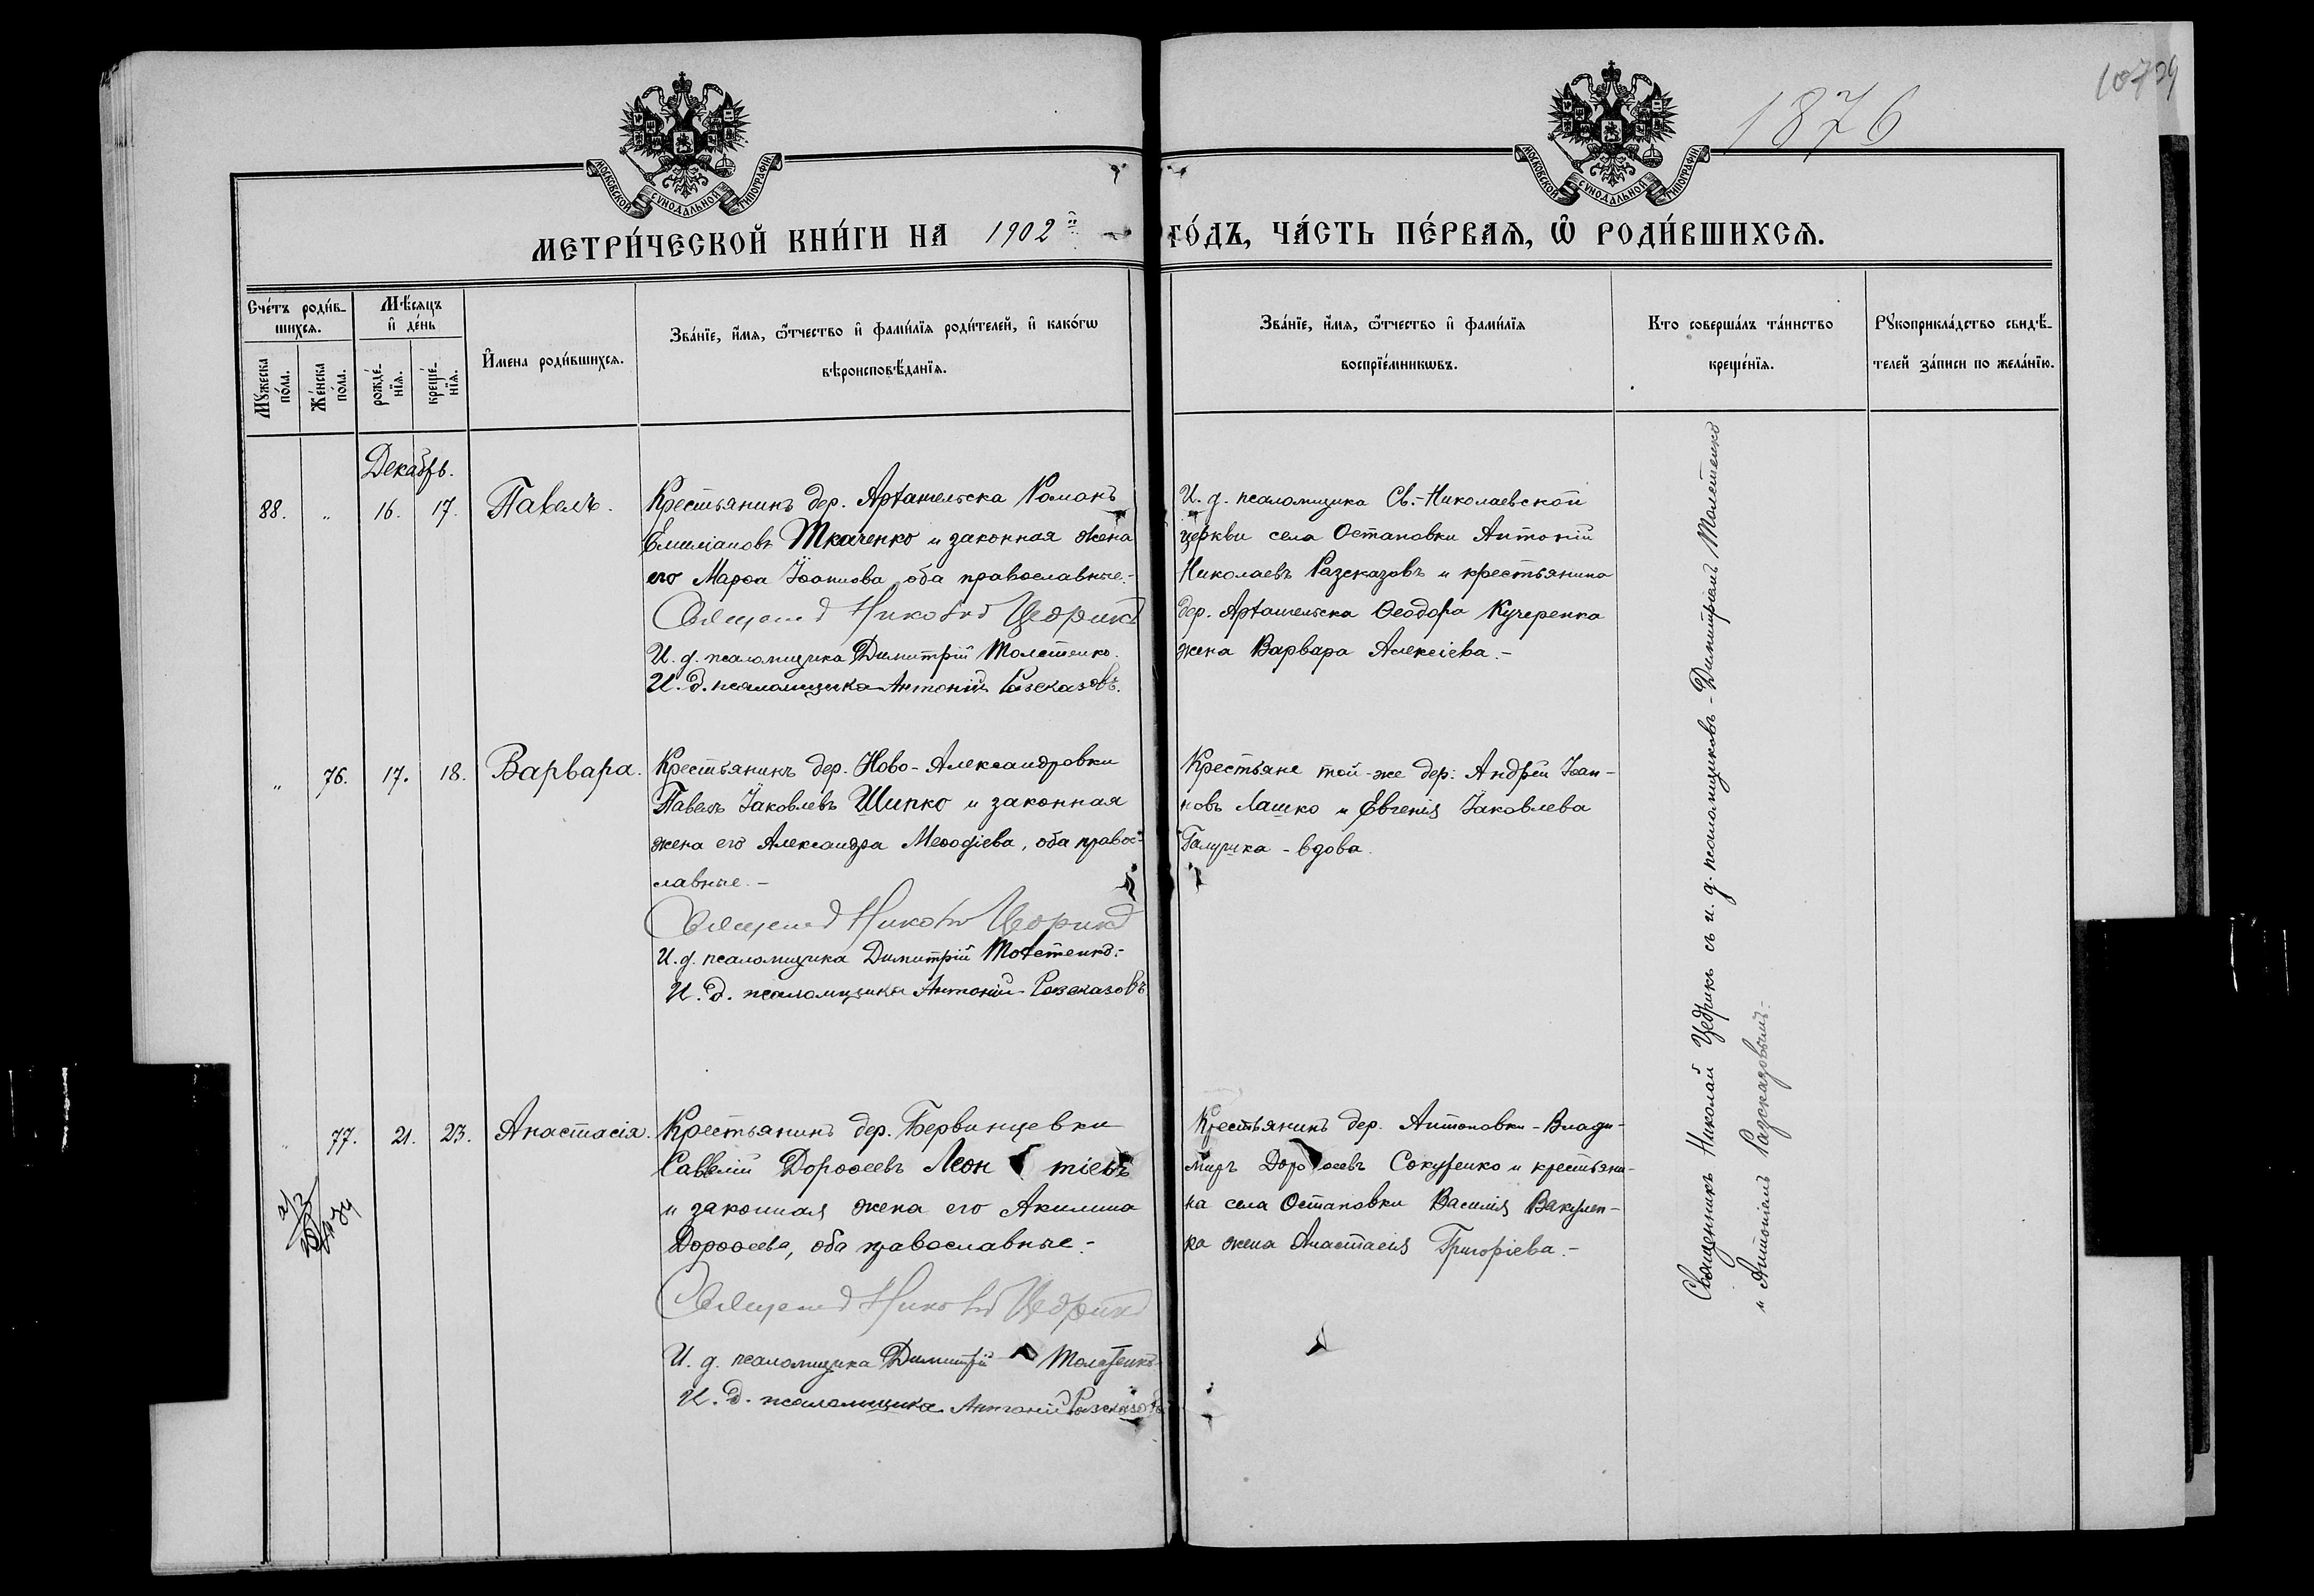 1876
МОСКОВСКОЙ СѴНОДАЛЬНОЙ ТИПОГРАФІИ
МОСКОВСКОЙ СѴНОДАЛЬНОЙ ТИПОГРАФІИ
МЕТРИ́ЧЕСКОЙ КНИ́ГИ НА 1902й ГО́ДЪ, ЧА́СТЬ ПЕ́РВАЯ, Ѡ҆ РОДИ́ВШИХСЯ.
Сче́тъ роди́в-
шихся.
Мѣ́сяцъ
и҆ де́нь
Му́жеска по́ла.
Же́нска по́ла.
рожде́-
нїя.
креще́-
нїя.
И҆мена роди́вшихся.
Зва́нїе, и҆́мя, ѻ҆́тчество и҆ фами́лїя роди́телей, и҆ како́гѡ
вѣроисповѣ́данїя.
Зва́нїе, и҆́мя, ѻ҆́тчество и҆ фами́лїя
воспрїе́мникѡвъ.
Кто соверша́лъ та́инство
креще́нїя.
Рꙋкоприкла́дство свидѣ́-
телей за́писи по жела́нїю.
Декабрь.
88. „ 16. 17. Павелъ.
Крестьянинъ дер. Арташельска Романъ
Емиліановъ Ткаченко и законная жена
его Марѳа Іоаннова, оба православные.-
Священникъ Николай Цедрикъ
И. д. псаломщика Димитрій Толстенко.
И. д. псаломщика Антоній Разсказовъ.
И. д. псаломщика Св.-Николаевской
церкви села Остановки Антоній
Николаевъ Разсказовъ и крестьянина
дер. Арташельска Ѳеодора Кучеренка
жена Варвара Алексіева.-
„ 76. 17. 18. Варвара.
Крестьянинъ дер. Ново-Александровки
Павелъ Іаковлевъ Шипко и законная
жена его Александра Меѳодіева, оба право-
славные.-
Священникъ Николай Цедрикъ
И. д. псаломщика Димитрій Толстенко.-
И. д. псаломщика Антоній Разсказовъ
Крестьяне той-же дер: Андрей Іоан-
новъ Лашко и Евгенія Іаковлева
Галушка - вдова.
„ 77. 21. 23. Анастасія.
Крестьянинъ дер. Бервинцевки
Саввелій Дороѳеевъ Леон тіевъ
и законная жена его Акилина
Дороѳеева, оба православные.-
Священникъ Николай Цедрикъ
И. д. псаломщика Димитрій Толстенко
И. д. псаломщика Антоній Разсказовъ
Крестьянинъ дер. Антоновки - Влади-
миръ Дороѳеевъ Сокуренко и крестьяни-
на села Остановки Василія Вакулен-
ка жена Анастасія Григоріева.-
Священникъ Николай Цедрикъ съ и. д. псаломщиковъ - Димитріемъ Толстенко
и Антоніемъ Разсказовымъ.-